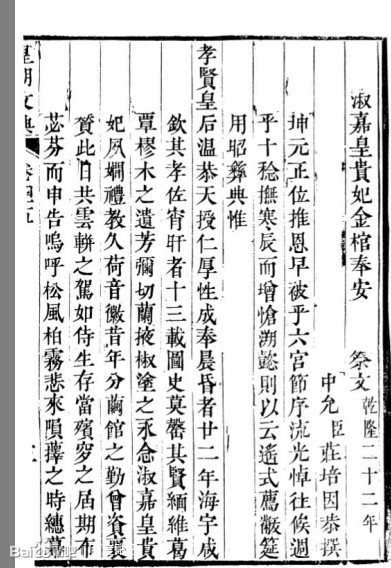 淑嘉皇貴妃金棺奉安 祭文 乾隆二十二年
中允臣莊培因恭撰
坤元正位推恩早被乎六宮節序流光悼往倏過
乎十稔撫寒辰而增愴溯懿則以云遙式薦敞筵
用昭彝典惟
孝賢皇后温恭天授仁厚性成奉晨昏者廿二年海宇咸
欽其孝佐宵旰者十三載圖史莫罄其賢緬維葛
覃樛木之遺芳彌切蘭掖椒塗之永念淑嘉皇貴
妃夙嫻禮教久荷音徽昔年分繭館之勤曾資襄
贊此日共雲軿之駕如侍生存當殯穸之屆期布
苾芬而申告嗚呼松風柏霧悲來隕籜之時繐幕
皇朝文典